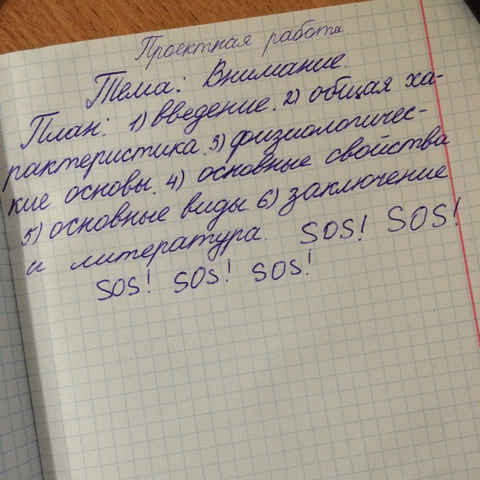 Проектная работа
Тема: Внимание.
План: 1) введение. 2) общая ха-
рактеристика. 3) физиологичес-
кие основы. 4) основные свойства
5) основные виды 6) заключение
и литература. SOS! SOS!
SOS! SOS! SOS!